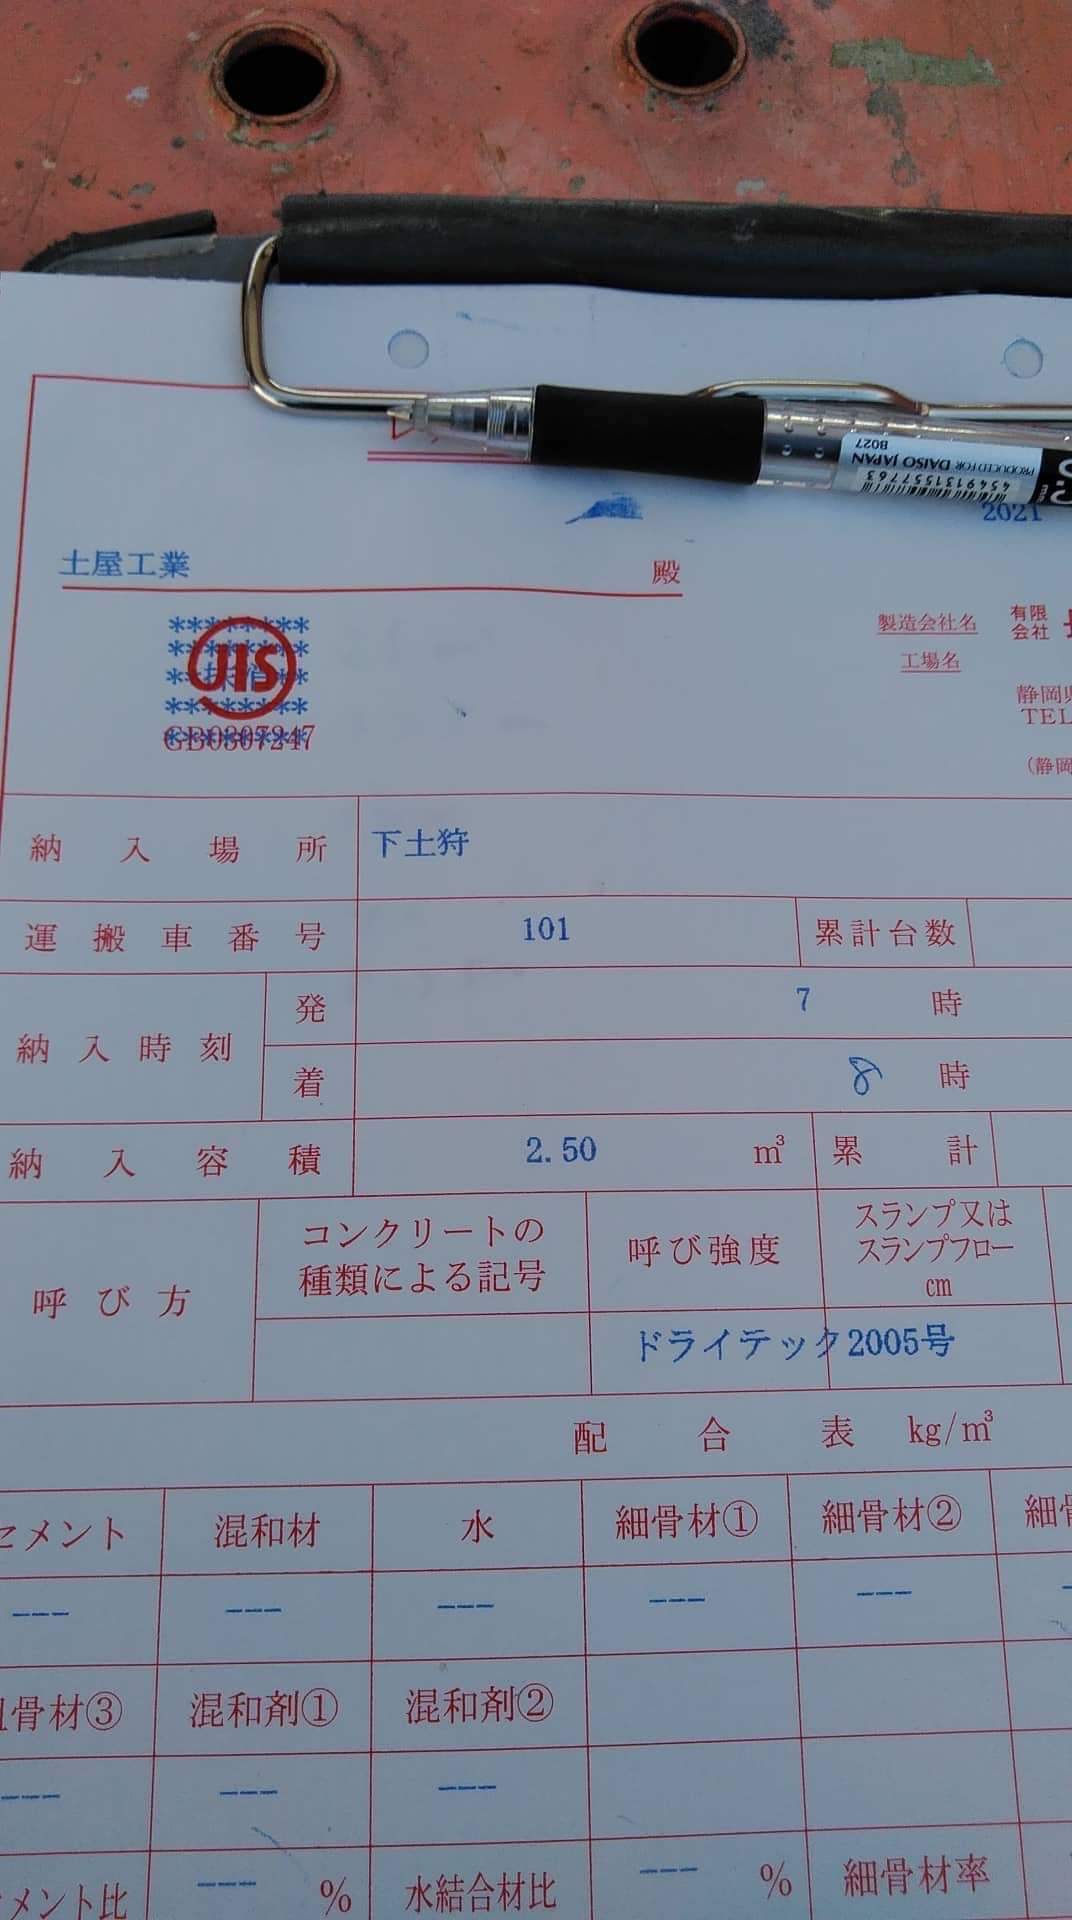 PRODUCED FOR DAISO JAPAN
8027
4549131557763
2021
土屋工業 殿
JIS
抹消
GB0307247
製造会社名 有限会社
工場名
静岡県
TEL
(静岡
納入場所 下土狩
運搬車番号 101 累計台数
納入時刻 発 7 時
着 8 時
納入容積 2.50 m³ 累計
呼び方 コンクリートの種類による記号 呼び強度 スランプ又はスランプフロー cm
ドライテック2005号
配合表 kg/m³
セメント 混和材 水 細骨材① 細骨材② 細骨
--- --- --- --- ---
粗骨材③ 混和剤① 混和剤②
--- --- ---
メント比 --- % 水結合材比 --- % 細骨材率